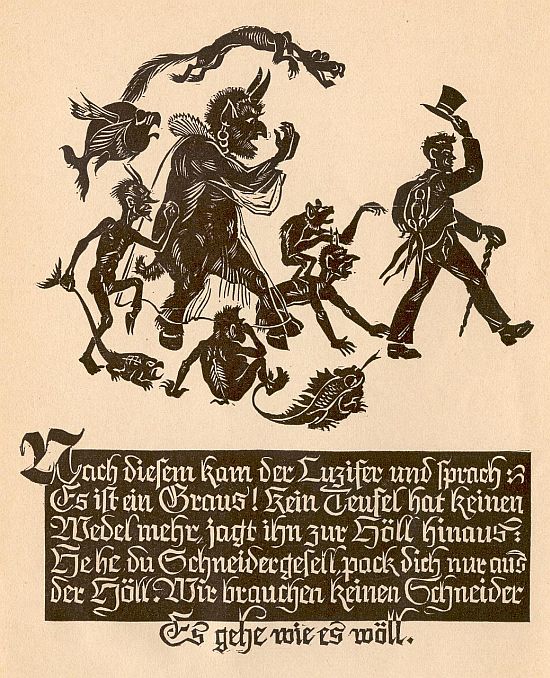 Nach diesem kam der Luzifer und sprach:
Es ist ein Graus! Kein Teufel hat keinen
Wedel mehr, jagt ihn zur Höll hinaus:
He he du Schneidergesell, pack dich nur aus
der Höll: Wir brauchen keinen Schneider
Es gehe wie es wöll.